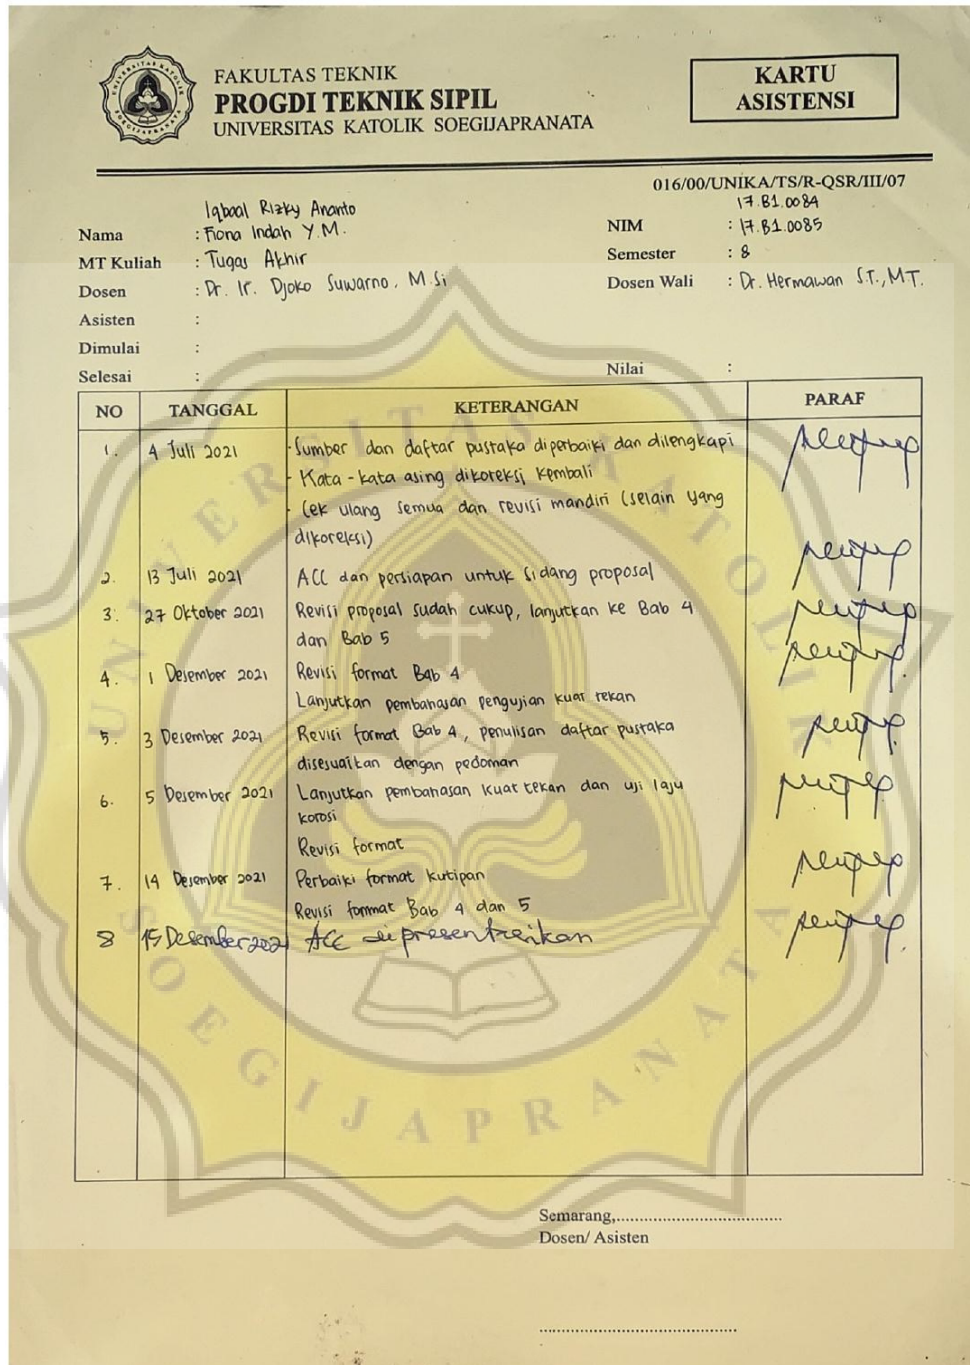 FAKULTAS TEKNIK
PROGDI TEKNIK SIPIL
UNIVERSITAS KATOLIK SOEGIJAPRANATA
KARTU
ASISTENSI
016/00/UNIKA/TS/R-QSR/III/07
Iqbaal Rizky Ananto
17.B1.0084
Nama : Fiona Indah Y.M.
NIM : 17.B1.0085
MT Kuliah : Tugas Akhir
Semester : 8
Dosen : Dr. Ir. Djoko Suwarno, M.Si
Dosen Wali : Dr. Hermawan S.T., MT.
Asisten :
Dimulai :
Selesai :
Nilai :
NO TANGGAL KETERANGAN PARAF
1. 4 Juli 2021 - Sumber dan daftar pustaka diperbaiki dan dilengkapi
- Kata - kata asing dikoreksi kembali
- Cek ulang semua dan revisi mandiri (selain yang
dikoreksi)
2. 13 Juli 2021 ACC dan persiapan untuk sidang proposal
3. 27 Oktober 2021 Revisi proposal sudah cukup, lanjutkan ke Bab 4
dan Bab 5
4. 1 Desember 2021 Revisi format Bab 4
Lanjutkan pembahasan pengujian kuat tekan
5. 3 Desember 2021 Revisi format Bab 4, penulisan daftar pustaka
disesuaikan dengan pedoman
6. 5 Desember 2021 Lanjutkan pembahasan kuat tekan dan uji laju
korosi
Revisi format
7. 14 Desember 2021 Perbaiki format kutipan
Revisi format Bab 4 dan 5
8 15 Desember 2021 ACC dipresentasikan
Semarang,....................................
Dosen/ Asisten
UNIVERSITAS KATOLIK
SOEGIJAPRANATA